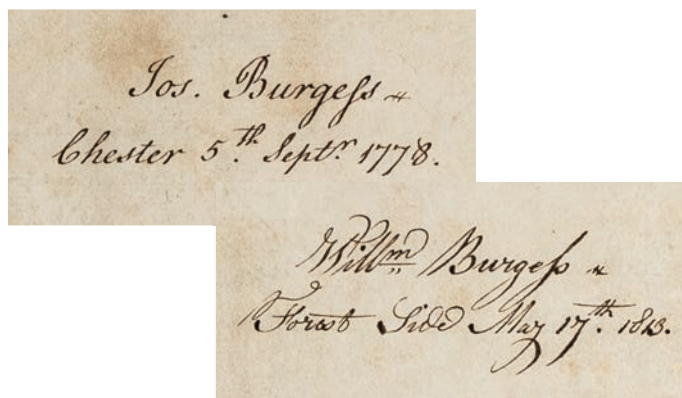 Jos. Burgeſs
Chester 5th. Septr. 1778.
Willm Burgeſs
Forest Side May 17th. 1813.